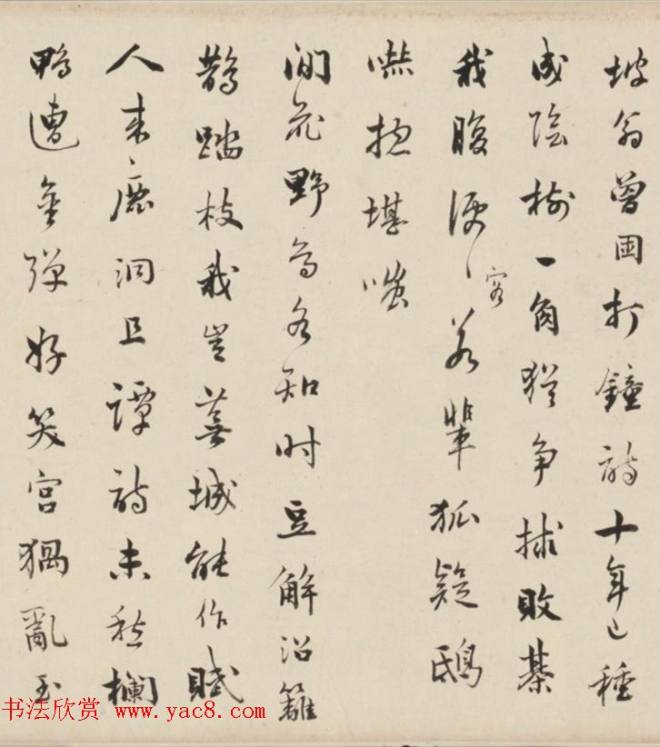 坡翁曾因打鐘詩十年已種
成陰樹一角猶爭採敗棊
我腹便便容若輩狐疑鴟
嚇揔堪嗤
澗花野鳥各知时豆解沿籬
鵲踏枝我豈蕪城能作賦
人來鹿洞且譚詩未愁欄
鴨遭金彈好笑宮猧亂玉
书法欣赏 www.yac8.com